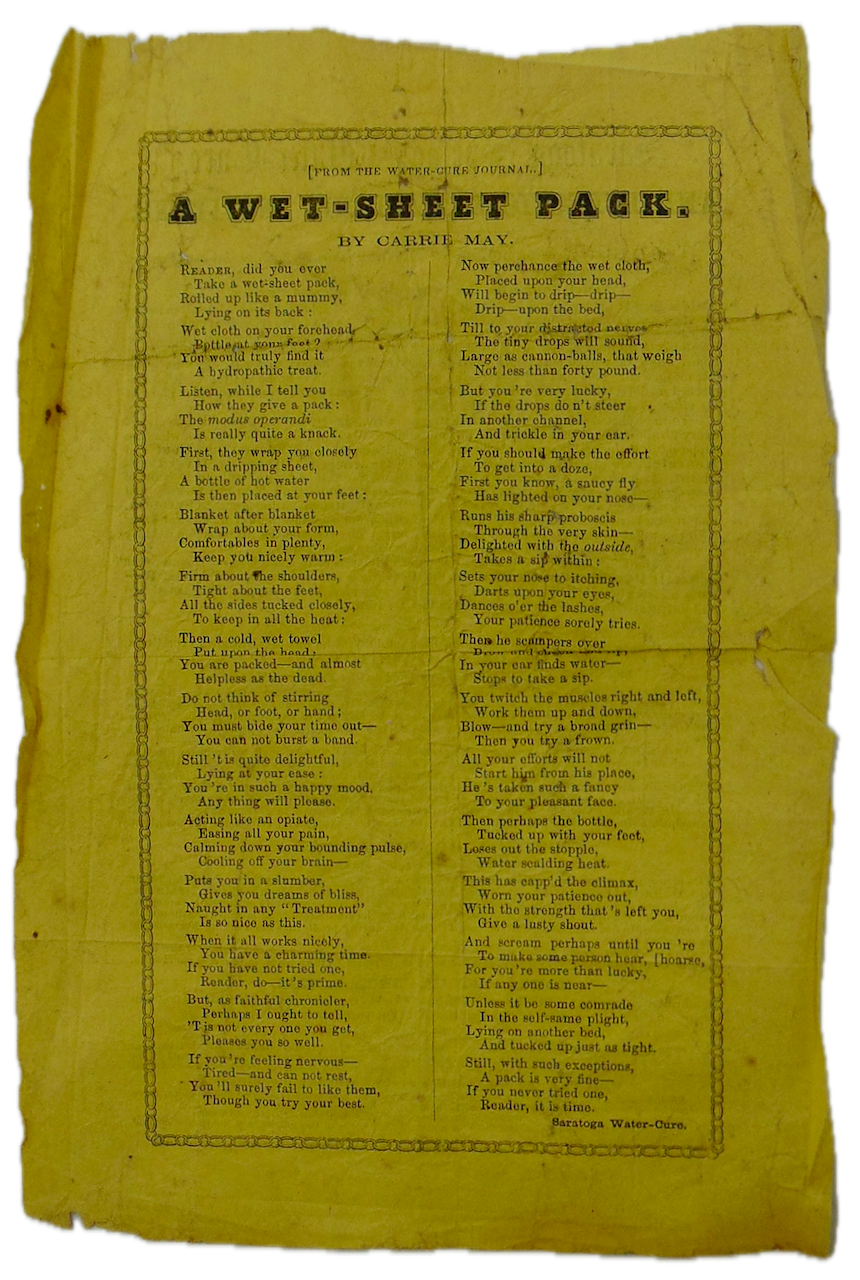 [FROM THE WATER-CURE JOURNAL.]
A WET-SHEET PACK.
BY CARRIE MAY.
READER, did you ever
Take a wet-sheet pack,
Rolled up like a mummy,
Lying on its back :
Wet cloth on your forehead,
Bottle at your feet ?
You would truly find it
A hydropathic treat.
Listen, while I tell you
How they give a pack :
The modus operandi
Is really quite a knack.
First, they wrap you closely
In a dripping sheet,
A bottle of hot water
Is then placed at your feet :
Blanket after blanket
Wrap about your form,
Comfortables in plenty,
Keep you nicely warm :
Firm about the shoulders,
Tight about the feet,
All the sides tucked closely,
To keep in all the heat :
Then a cold, wet towel
Put upon the head ;
You are packed—and almost
Helpless as the dead.
Do not think of stirring
Head, or foot, or hand ;
You must bide your time out—
You can not burst a band.
Still 't is quite delightful,
Lying at your ease :
You 're in such a happy mood,
Any thing will please.
Acting like an opiate,
Easing all your pain,
Calming down your bounding pulse,
Cooling off your brain—
Puts you in a slumber,
Gives you dreams of bliss,
Naught in any "Treatment"
Is so nice as this.
When it all works nicely,
You have a charming time.
If you have not tried one,
Reader, do—it's prime.
But, as faithful chronicler,
Perhaps I ought to tell,
'T is not every one you get,
Pleases you so well.
If you 're feeling nervous—
Tired—and can not rest,
You 'll surely fail to like them,
Though you try your best.
Now perchance the wet cloth,
Placed upon your head,
Will begin to drip—drip—
Drip—upon the bed,
Till to your distracted nerves
The tiny drops will sound,
Large as cannon-balls, that weigh
Not less than forty pound.
But you 're very lucky,
If the drops do n't steer
In another channel,
And trickle in your ear.
If you should make the effort
To get into a doze,
First you know, a saucy fly
Has lighted on your nose—
Runs his sharp proboscis
Through the very skin—
Delighted with the outside,
Takes a sip within :
Sets your nose to itching,
Darts upon your eyes,
Dances o'er the lashes,
Your patience sorely tries.
Then he scampers over
In your ear finds water—
Stops to take a sip.
You twitch the muscles right and left,
Work them up and down,
Blow—and try a broad grin—
Then you try a frown.
All your efforts will not
Start him from his place,
He 's taken such a fancy
To your pleasant face.
Then perhaps the bottle,
Tucked up with your feet,
Loses out the stopple,
Water scalding heat.
This has capp'd the climax,
Worn your patience out,
With the strength that 's left you,
Give a lusty shout.
And scream perhaps until you 're
To make some person hear, [hoarse,
For you're more than lucky,
If any one is near—
Unless it be some comrade
In the self-same plight,
Lying on another bed,
And tucked up just as tight.
Still, with such exceptions,
A pack is very fine—
If you never tried one,
Reader, it is time.
Saratoga Water-Cure.